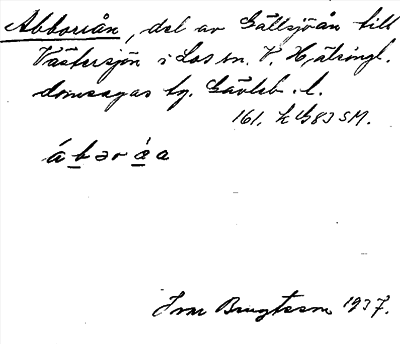 Abborrån, del av Gällsjöån till
Västersjön i Los sn. V. Hälsingl.
domsagas tg. Gävleb. l.
161. h G83 SM.
á b ə r å̀ a
Ivar Bengtsson 1937.